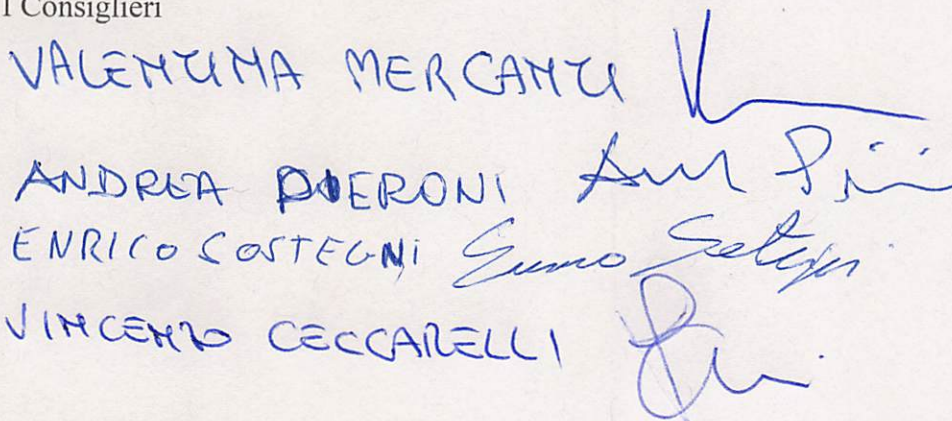 I Consiglieri
VALENTINA MERCANTI
ANDREA PIERONI
ENRICO SOSTEGNI
VINCENZO CECCARELLI